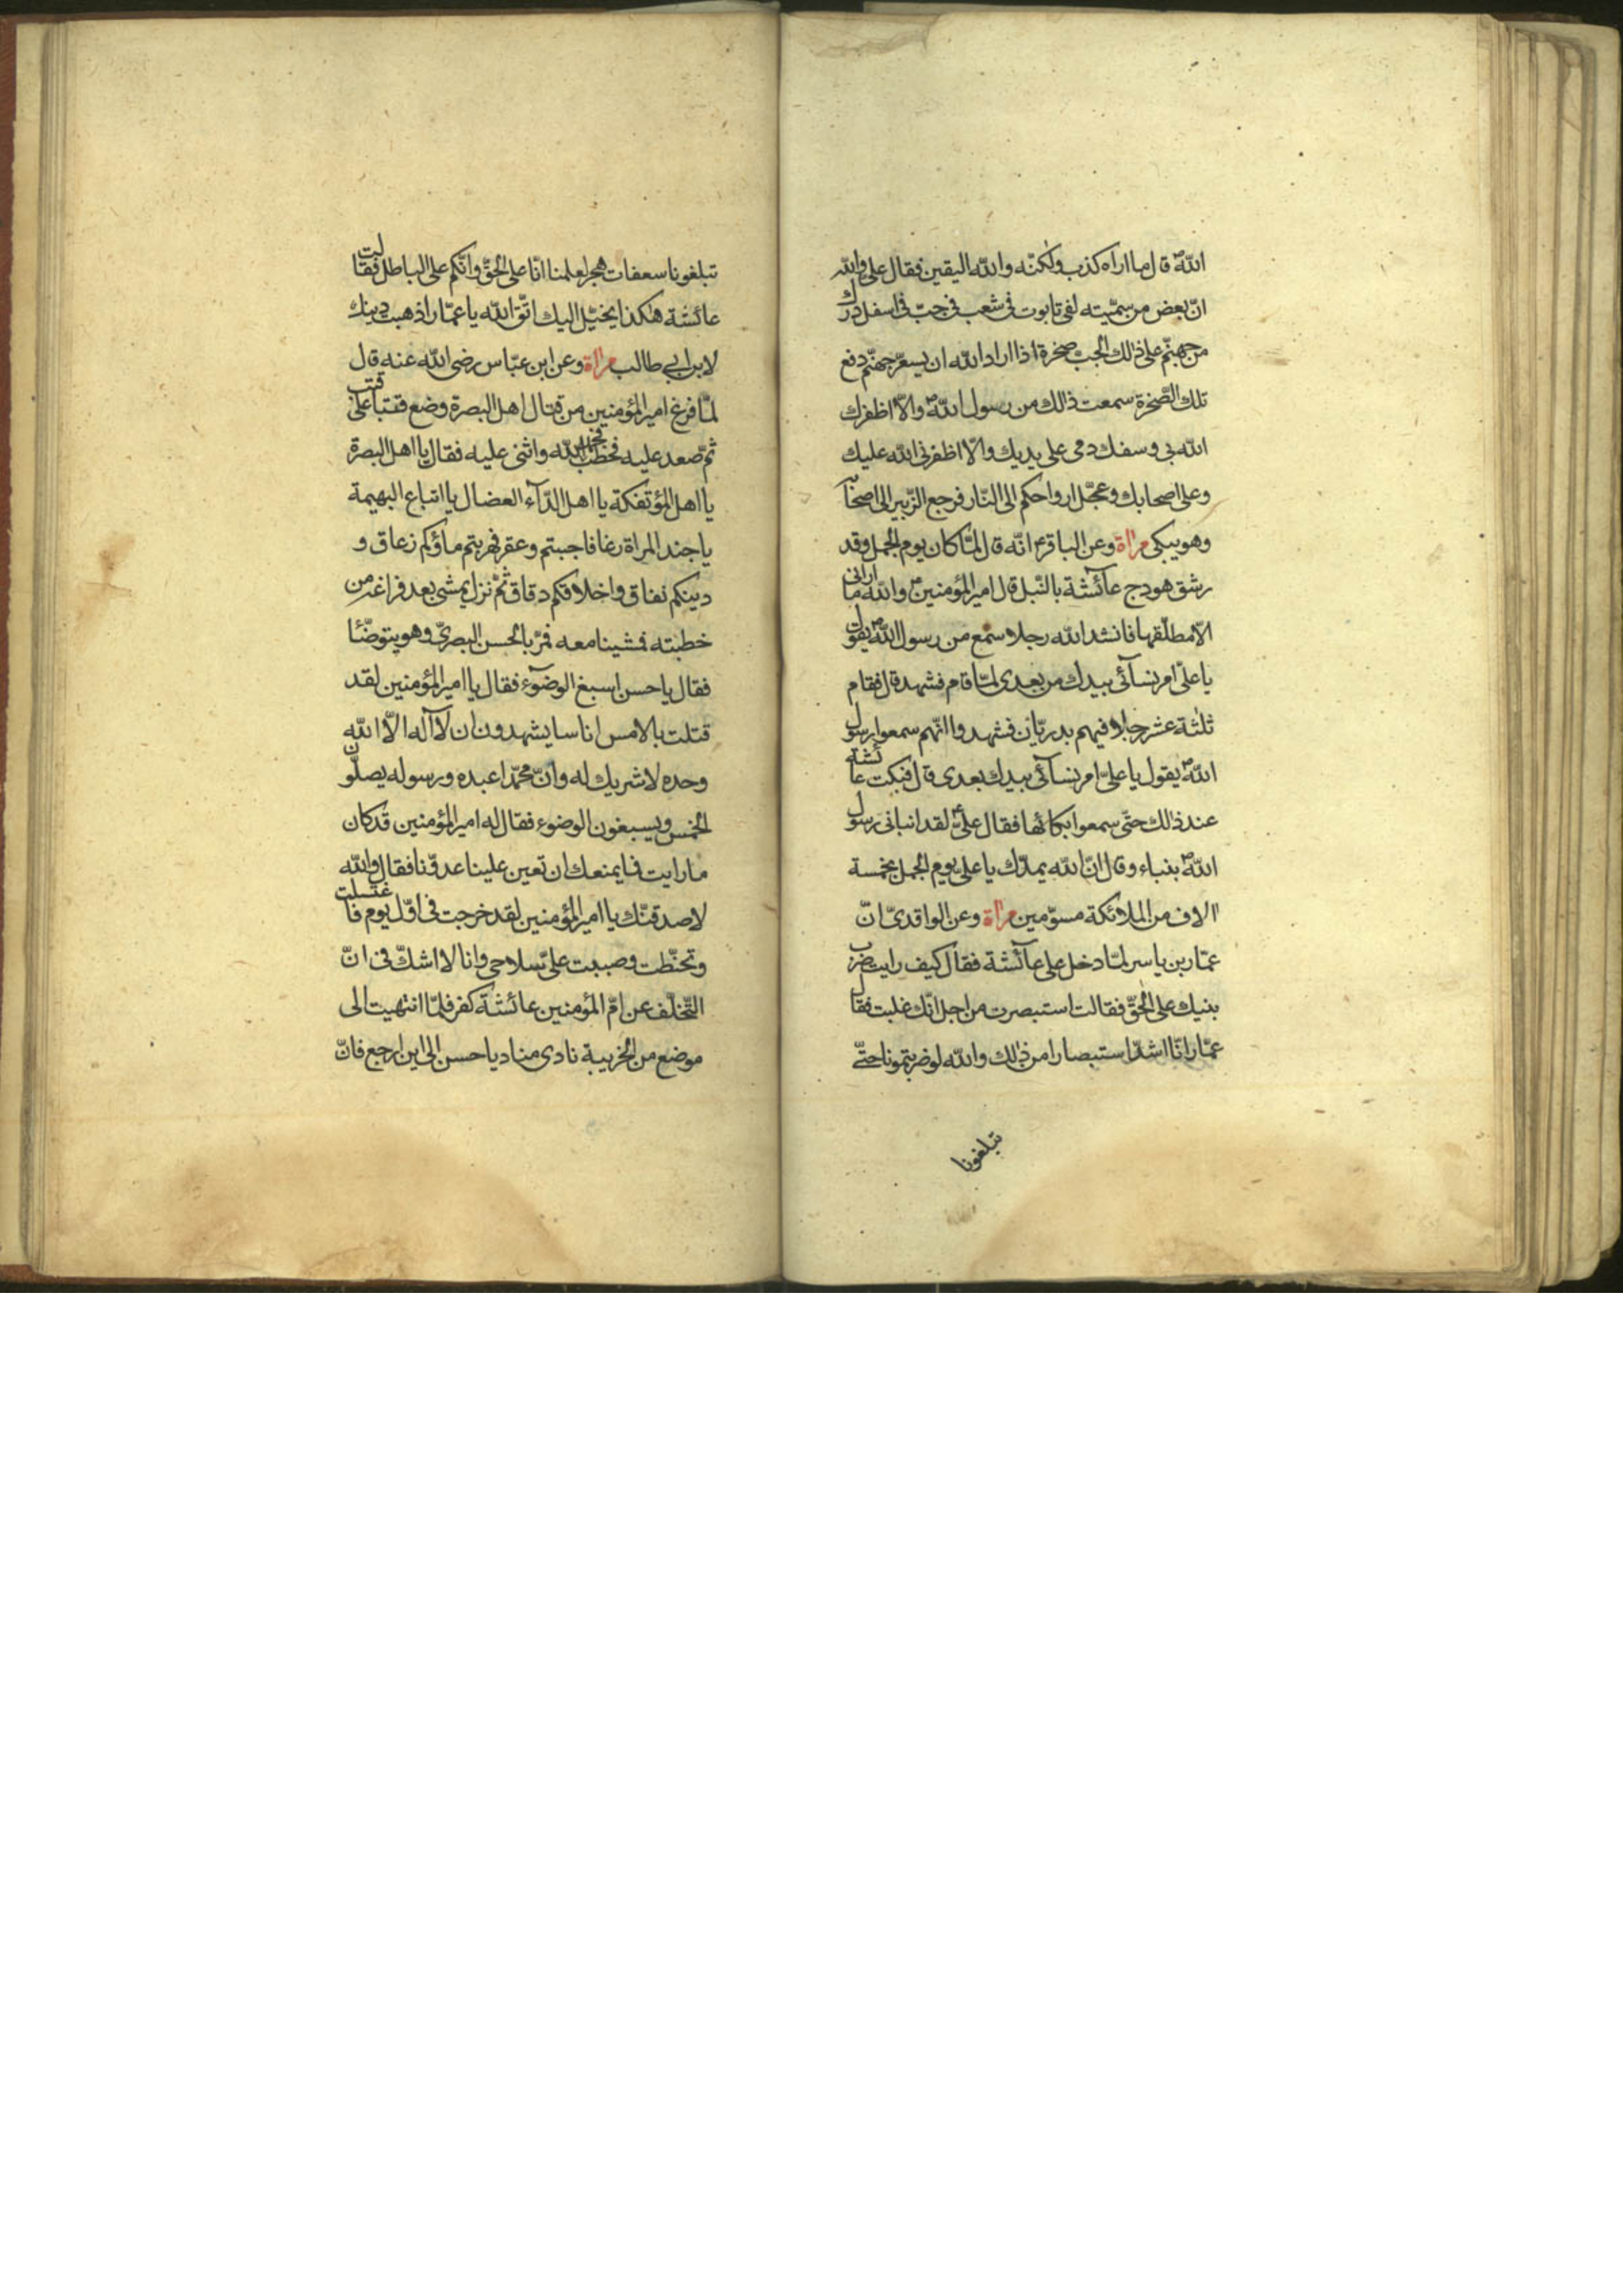 اللهّ ص قال ما اراه كذب ولكنّه والله اليقين فقال علىّ والله
انّ بعض من سمّيته لفى تابوت فى شعب فى جبّ فى اسفل درك
من جهنّم على ذالك الجبّ صخرة اذا اراد الله ان يسعّر جهنّم دفع
تلك الصّخرة سمعت ذالك من رسول اللهّ ص والّا اظفرك
الله بى وسفك دمى على يديك والّا اظفرنى الله عليك
وعلى اصحابك وعجّل ارواحكم الى النّار فرجع الزّبير الى اصحابه
وهو يبكى مرآة وعن الباقر ع انّه قال لمّا كان يوم الجمل وقد
رشق هودج عآئشة بالنّبل قال امير المؤمنين ع والله ما ارانى
الّا مطلّقها فانشد الله رجلا سمع من رسول اللهّ ص يقول
يا علىّ امر نسآئى بيدك من بعدى لمّا قام فشهد قال فقام
ثلثة عشر رجلا فيهم بدريّان فشهدوا انّهم سمعوا رسول
اللهّ ص يقول يا علىّ امر نسآئى بيدك بعدى قال فبكت عائشة
عند ذالك حتّى سمعوا بكائها فقال علىّ ع لقد انبانى رسول
اللهّ ص بنباء وقال انّ الله يمدّك يا على يوم الجمل بخمسة
الاف من الملائكة مسوّمين مرآة وعن الواقدىّ انّ
عمّار بن ياسر لمّا دخل على عآئشة فقال كيف رايت ضرب
بنيك على الحقّ فقالت استبصرت من اجل انّك غلبت فقال
عمّار انا اشدّ استبصارا من ذلك والله لو ضربتمونا حتّى
تبلغونا
تبلغونا سعفات هجر لعلمنا انّا على الحقّ وانّكم على الباطل فقالت
عائشة هكذا يخيّل اليك اتّق الله يا عمّار اذهبت دينك
لابن ابى طالب مرآة وعن ابن عبّاس رضى الله عنه قال
لمّا فرغ امير المؤمنين من قتال اهل البصرة وضع قتبا على قتب
ثمّ صعد عليه فخطب فحمد الله واثنى عليه فقال يا اهل البصرة
يا اهل المؤتفكة يا اهل الدّآء العضال يا اتباع البهيمة
يا جند المراة رغا فاجبتم وعقر فهربتم ماؤكم زعاق و
دينكم نفاق واخلاقكم دقاق ثمّ نزل يمشى بعد فراغه من
خطبته فمشينا معه فمرّ بالحسن البصرىّ وهو يتوضّئا
فقال يا حسن اسبغ الوضوء فقال يا امير المؤمنين لقد
قتلت بالامس اناسا يشهدون ان لا آله الّا الله
وحده لا شريك له وانّ محمّدا عبده ورسوله يصلّون
الخمس ويسبغون الوضوء فقال له امير المؤمنين قد كان
ما رايت فما يمنعك ان تعين علينا عدوّنا فقال والله
لاصدقنّك يا امير المؤمنين لقد خرجت فى اوّل يوم فاغتسلت
وتحنّطت وصببت علىّ سلاحى وانا لا اشكّ فى انّ
التّخلّف عن امّ المؤمنين عائشة كفر فلمّا انتهيت الى
موضع من الخريبة نادى مناد يا حسن الى اين ارجع فانّ